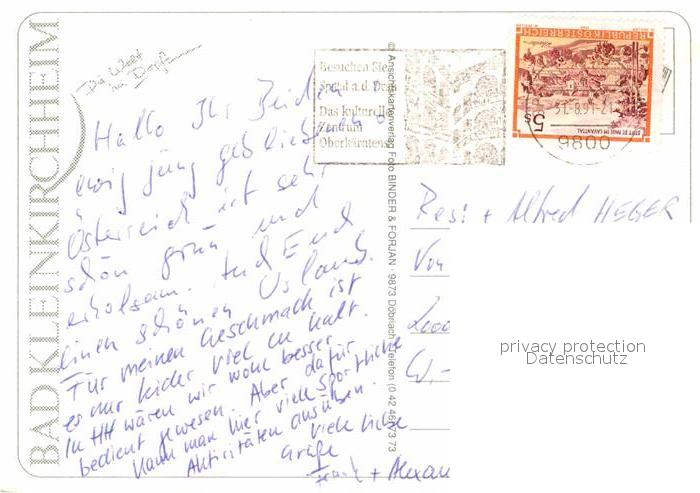 BAD KLEINKIRCHHEIM
Die Welt
im Dorf
Hallo Ihr Beiden
ewig jung gebliebenen
Österreich ist sehr
schön grün und
erholsam. Auch Euch
einen schönen Urlaub.
Für meinen Geschmack ist
es nur leider viel zu kalt.
In HH wären wir wohl besser
bedient gewesen. Aber dafür
kann man hier viele sportliche
Aktivitäten ausüben.
Viele liebe
Grüße
Frank + Alexan
© Ansichtskartenverlag Foto BINDER & FORJAN 9873 Döbriach Telefon (0 42 46) 73 73
Besuchen Sie
Spittal a.d. Drau
Das kulturelle
Zentrum
Oberkärntens
REPUBLIK ÖSTERREICH
5s
STIFT ST. PAUL IM LAVANTTAL
9800
Resi + Alfred HEGER
Von
privacy protection
Datenschutz